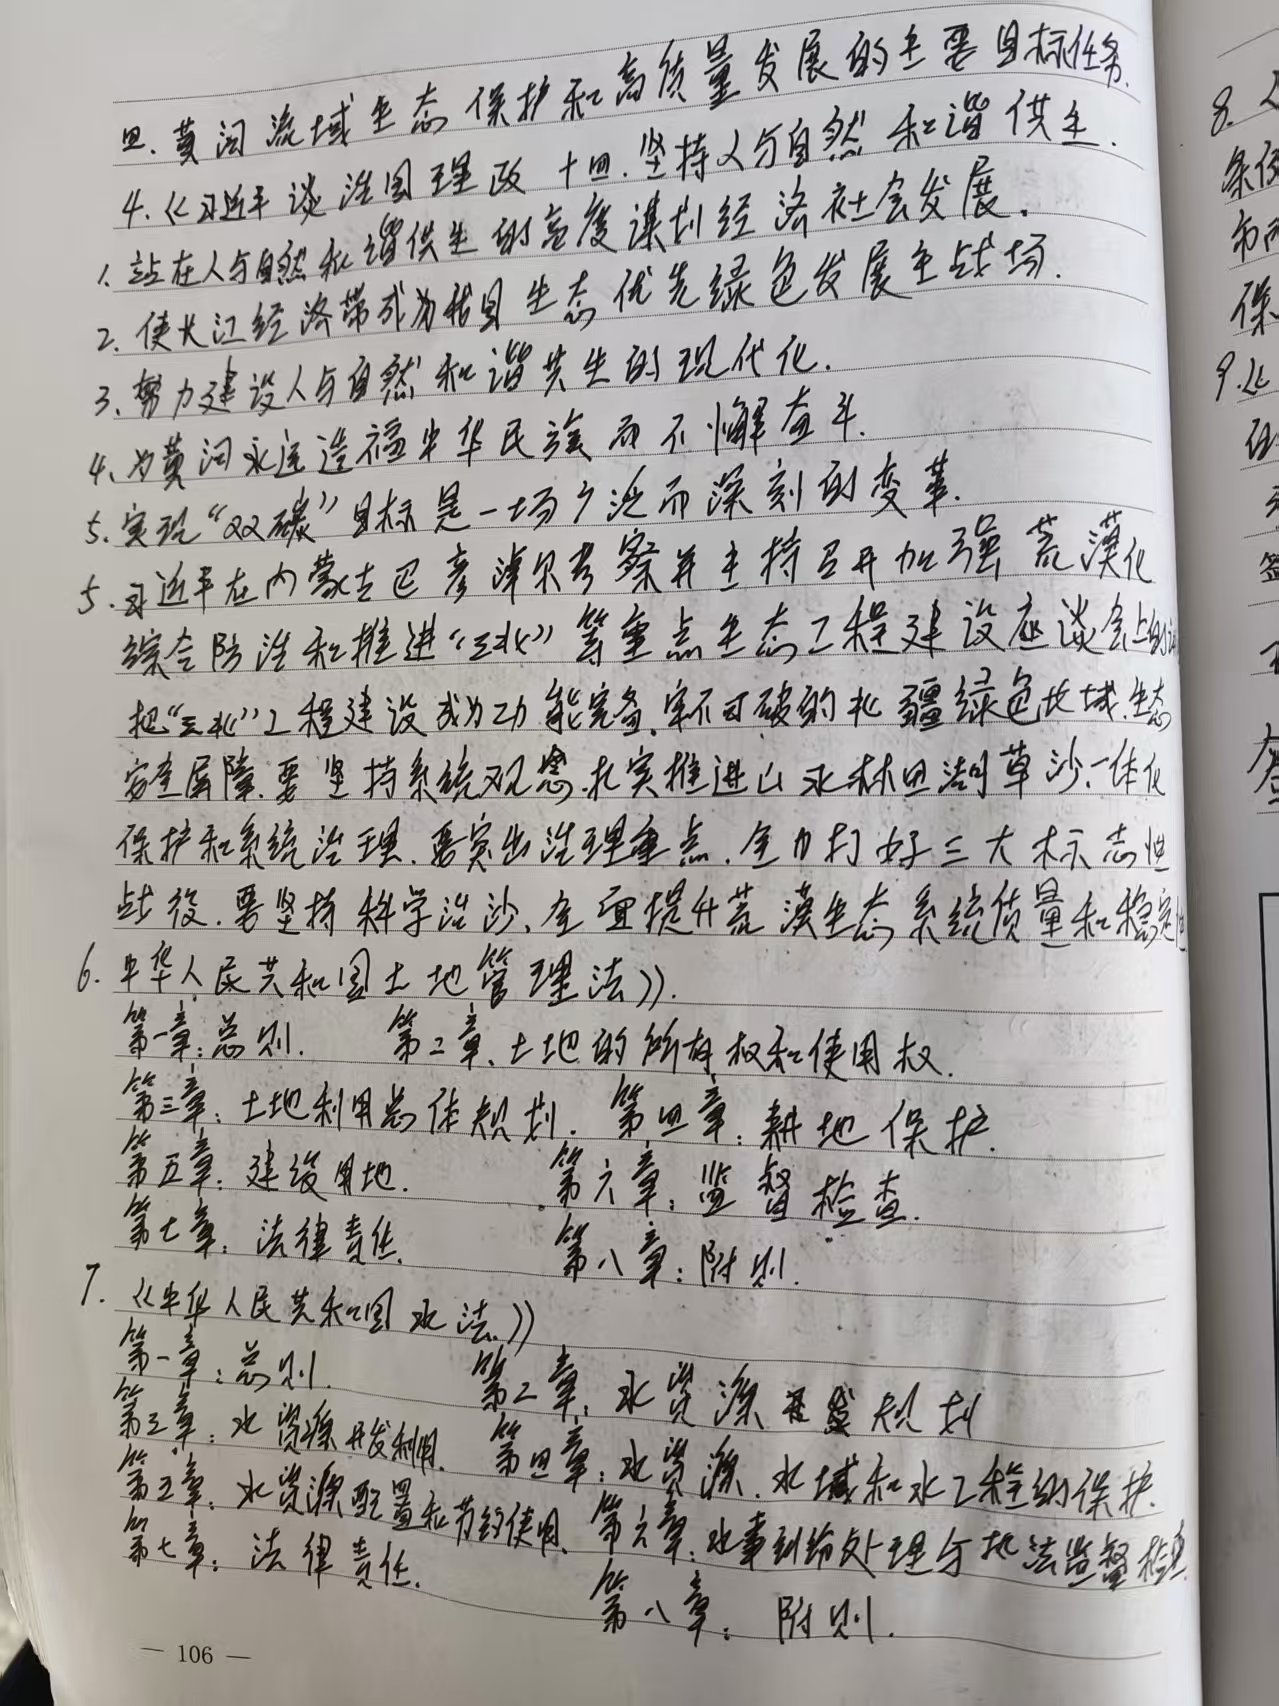 四.黄河流域生态保护和高质量发展的主要目标任务.
4.《习近平谈治国理政 十四.坚持人与自然和谐供生.
1.站在人与自然和谐供生的高度谋划经济社会发展.
2.使长江经济带成为我国生态优先绿色发展主战场.
3.努力建设人与自然和谐共生的现代化.
4.为黄河永远造福中华民族而不懈奋斗.
5.实现“双碳”目标是一场广泛而深刻的变革.
5.习近平在内蒙古巴彦淖尔考察并主持召开加强荒漠化
综合防治和推进“三北”等重点生态工程建设座谈会上的
把“三北”工程建设成为功能完备.牢不可破的北疆绿色长城.生态
安全屏障.要坚持系统观念.扎实推进山水林田湖草沙一体化
保护和系统治理.要突出治理重点.全力打好三大标志性
战役.要坚持科学治沙.全面提升荒漠生态系统质量和稳定性
6.中华人民共和国土地管理法》.
第一章:总则. 第二章.土地的所有权和使用权.
第三章:土地利用总体规划. 第四章:耕地保护.
第五章:建设用地. 第六章:监督检查.
第七章:法律责任. 第八章:附则.
7.《中华人民共和国水法.》
第一章:总则. 第二章:水资源规划
第三章:水资源开发利用. 第四章:水资源.水域和水工程的保护.
第五章:水资源配置和节约使用. 第六章:水事纠纷处理与执法监督检查.
第七章:法律责任.
第八章:附则.
— 106 —
8.
条
市
保
9.